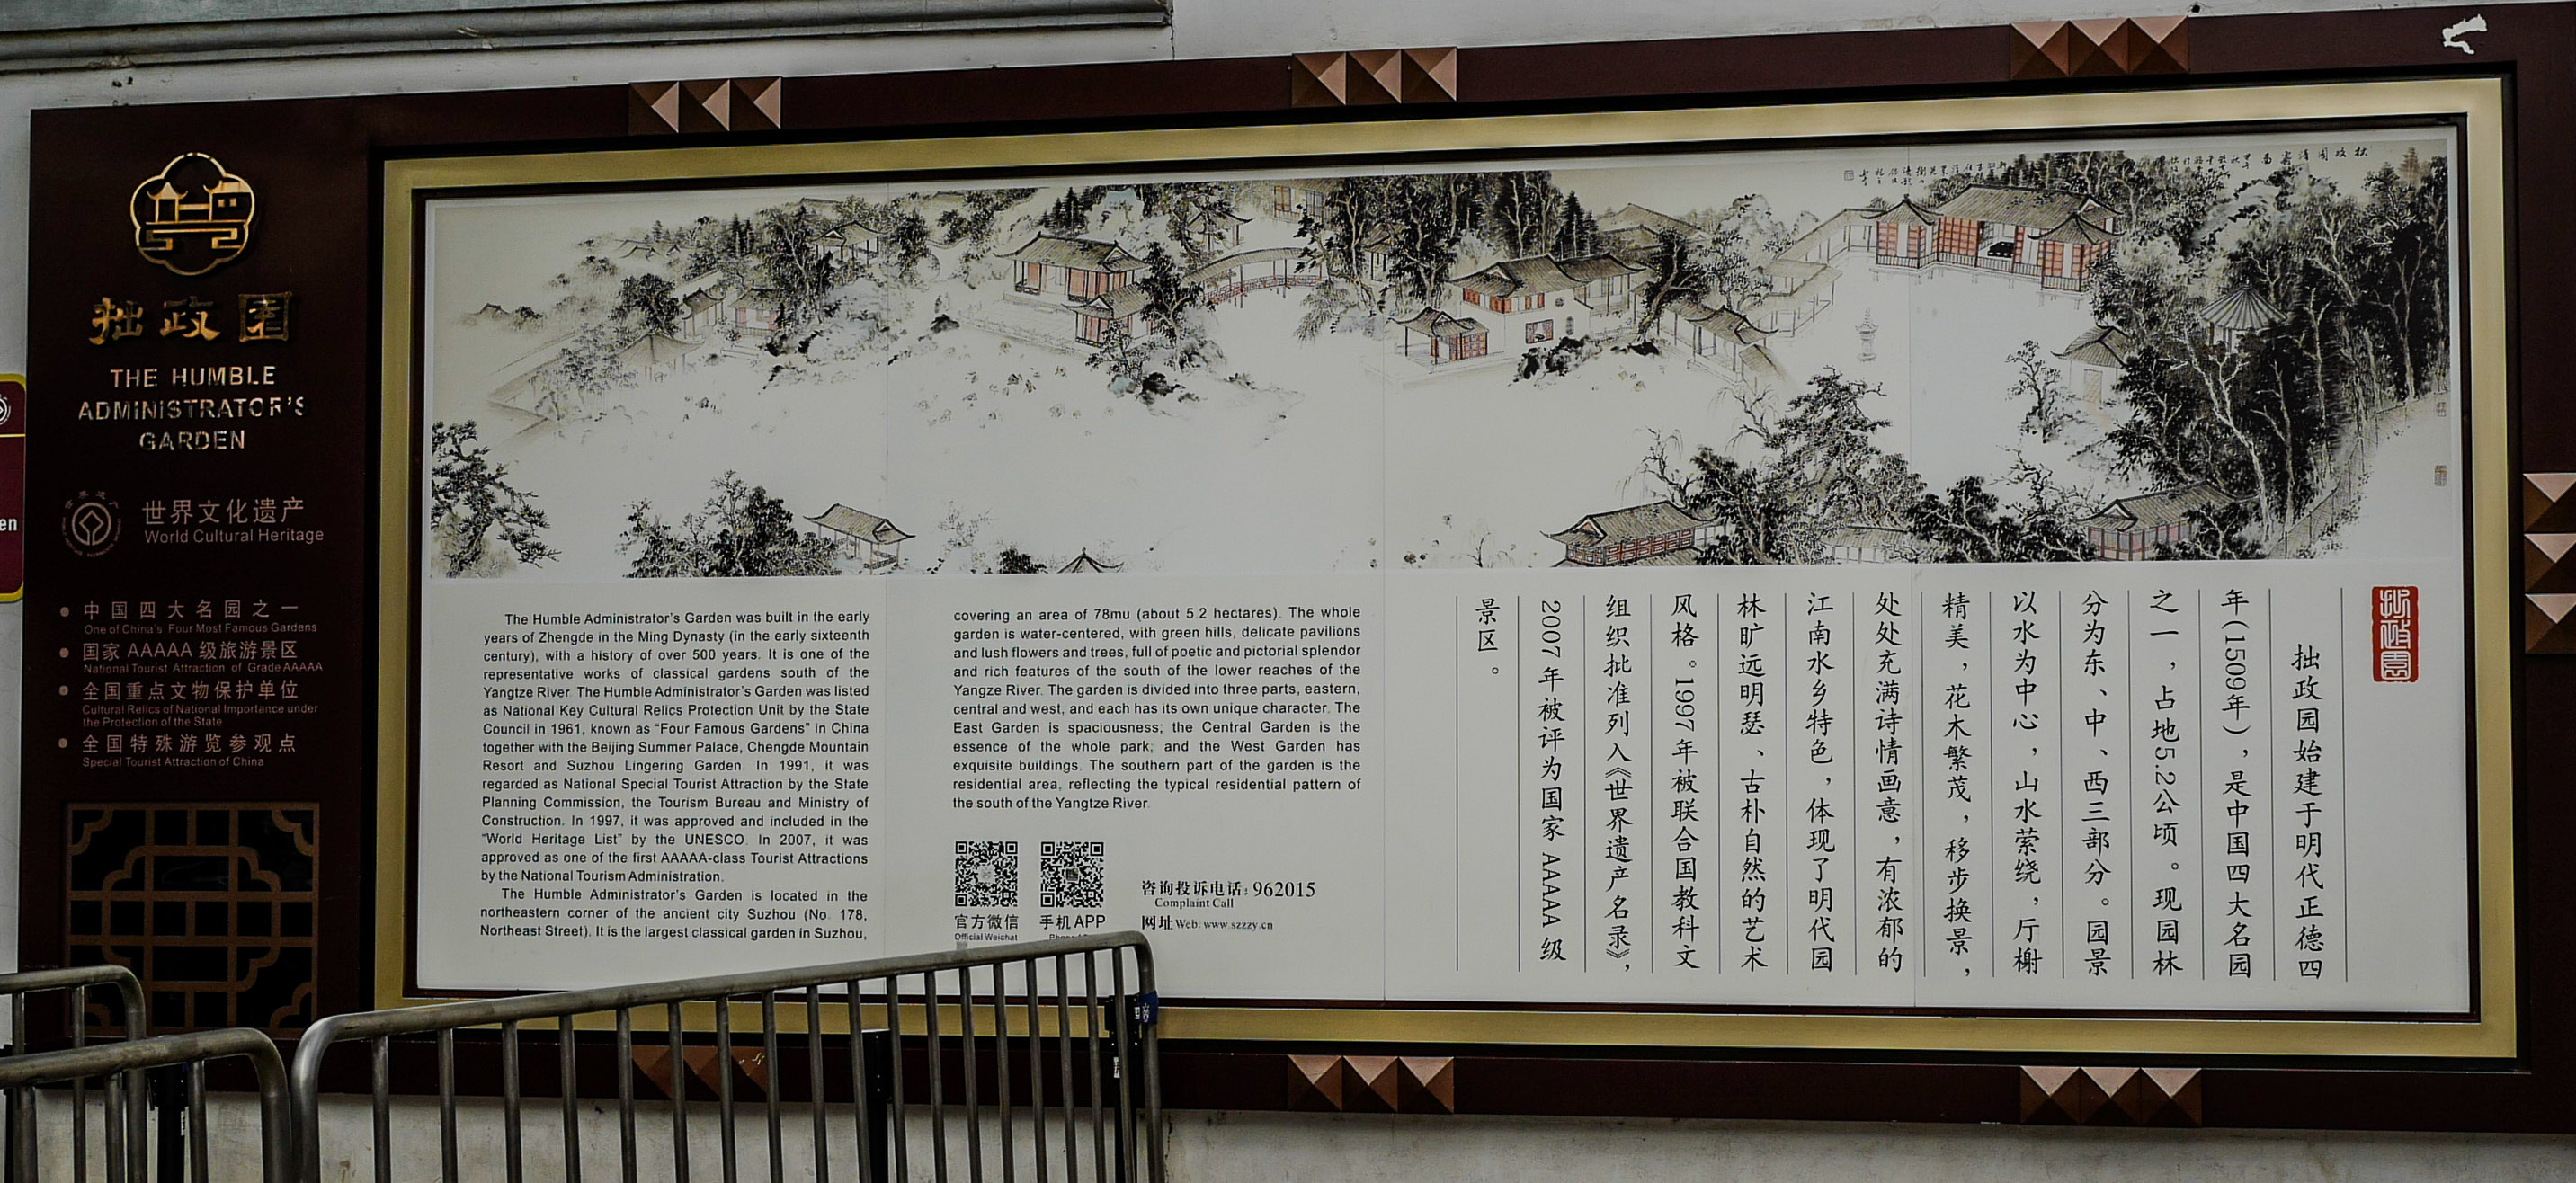 拙政园
THE HUMBLE
ADMINISTRATOR'S
GARDEN
世界文化遗产
World Cultural Heritage
中国四大名园之一
One of China's Four Most Famous Gardens
国家 AAAAA 级旅游景区
National Tourist Attraction of Grade AAAAA
全国重点文物保护单位
Cultural Relics of National Importance under
the Protection of the State
全国特殊游览参观点
Special Tourist Attraction of China
en
The Humble Administrator's Garden was built in the early
years of Zhengde in the Ming Dynasty (in the early sixteenth
century), with a history of over 500 years. It is one of the
representative works of classical gardens south of the
Yangtze River. The Humble Administrator's Garden was listed
as National Key Cultural Relics Protection Unit by the State
Council in 1961, known as "Four Famous Gardens" in China
together with the Beijing Summer Palace, Chengde Mountain
Resort and Suzhou Lingering Garden. In 1991, it was
regarded as National Special Tourist Attraction by the State
Planning Commission, the Tourism Bureau and Ministry of
Construction. In 1997, it was approved and included in the
"World Heritage List" by the UNESCO. In 2007, it was
approved as one of the first AAAAA-class Tourist Attractions
by the National Tourism Administration.
The Humble Administrator's Garden is located in the
northeastern corner of the ancient city Suzhou (No. 178,
Northeast Street). It is the largest classical garden in Suzhou,
covering an area of 78mu (about 5 2 hectares). The whole
garden is water-centered, with green hills, delicate pavilions
and lush flowers and trees, full of poetic and pictorial splendor
and rich features of the south of the lower reaches of the
Yangze River. The garden is divided into three parts, eastern,
central and west, and each has its own unique character. The
East Garden is spaciousness; the Central Garden is the
essence of the whole park; and the West Garden has
exquisite buildings. The southern part of the garden is the
residential area, reflecting the typical residential pattern of
the south of the Yangtze River.
官方微信
Official Weichat
手机APP
咨询投诉电话: 962015
Complaint Call
网址 Web: www.szzzy.cn
拙政园
拙政园始建于明代正德四
年(1509年)，是中国四大名园
之一，占地5.2公顷。现园林
分为东、中、西三部分。园景
以水为中心，山水萦绕，厅榭
精美，花木繁茂，移步换景，
处处充满诗情画意，有浓郁的
江南水乡特色，体现了明代园
林旷远明瑟、古朴自然的艺术
风格。1997年被联合国教科文
组织批准列入《世界遗产名录》，
2007年被评为国家AAAAA级
景区。